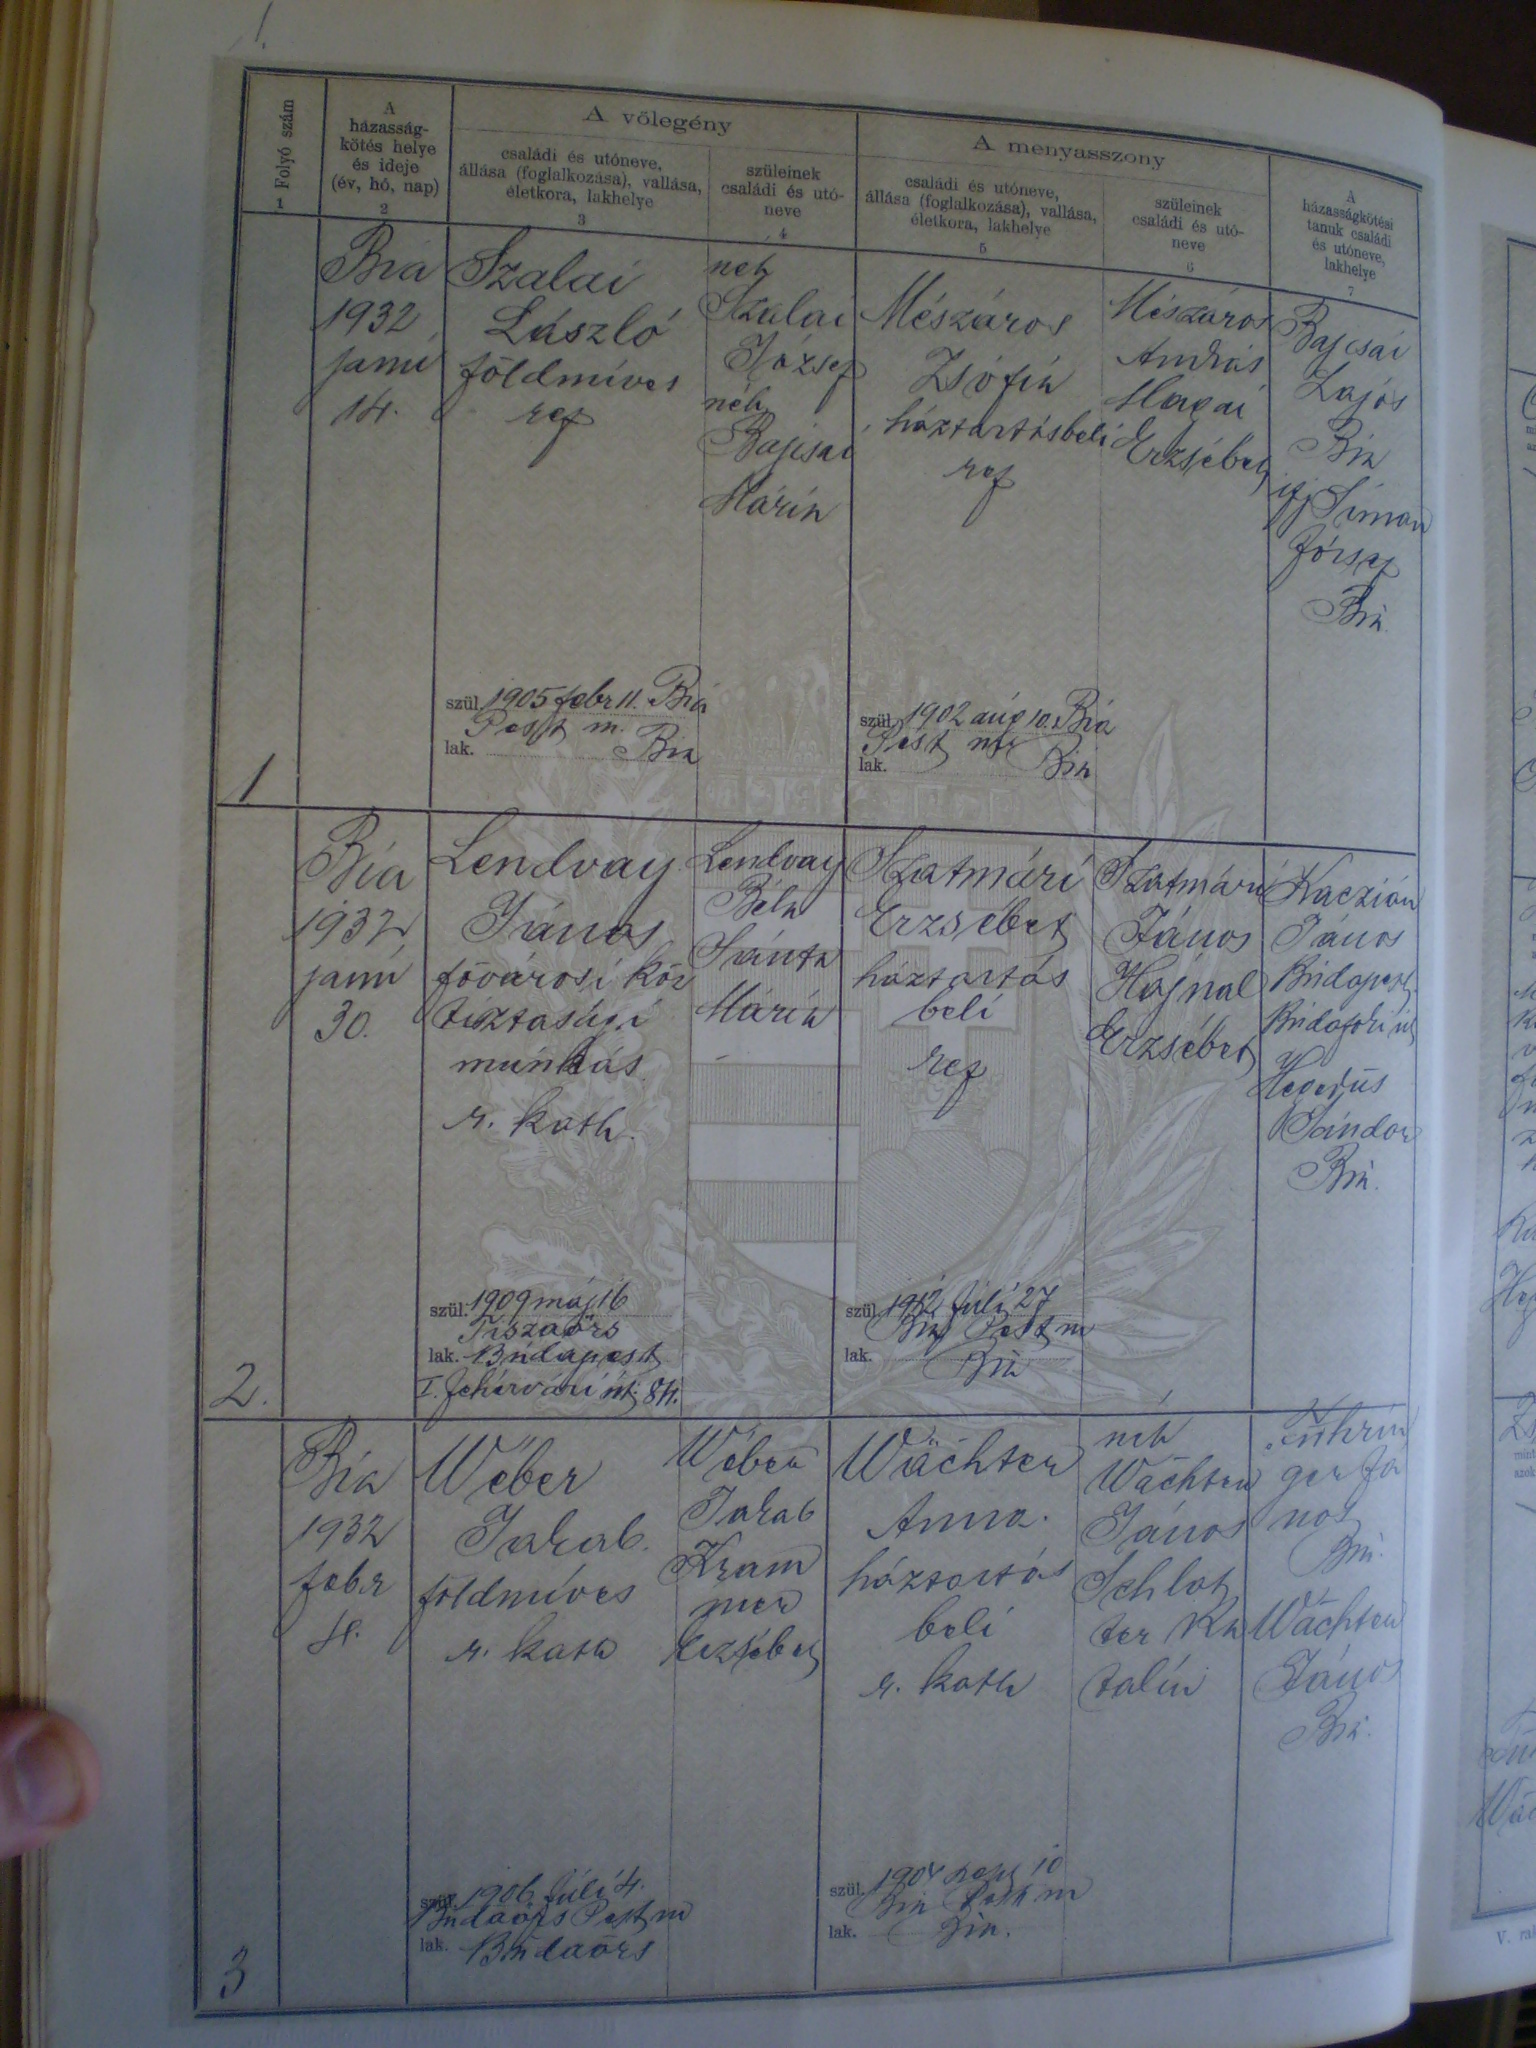 1.
Folyó szám
1
A
házasság-
kötés helye
és ideje
(év, hó, nap)
2
A vőlegény
családi és utóneve,
állása (foglalkozása), vallása,
életkora, lakhelye
3
szüleinek
családi és utó-
neve
4
A menyasszony
családi és utóneve,
állása (foglalkozása), vallása,
életkora, lakhelye
5
szüleinek
családi és utó-
neve
6
A
házasságkötési
tanuk családi
és utóneve,
lakhelye
7
1
Bia
1932
janu
14.
Szalai
László
földmíves
ref
szül. 1905 febr 11. Bia
Pest m.
lak. Bia
neh
Szalai
József
néh
Bajcsai
Mária
Mészáros
Zsófia
háztartásbeli
ref
szül. 1902 aug 10. Bia
Pest m
lak. Bia
Mészáros
András
Magai
Erzsébet
Bajcsai
Lajos
Bia
ifj Simon
József
Bia
2.
Bia
1932
janu
30.
Lendvay
János
fővárosi köz
tisztasági
munkás
r. kath.
szül. 1909 máj 16
Tiszaörs
lak. Budapest
I. fehérvári út 84.
Lendvay
Béla
Sánta
Mária
Szatmári
Erzsébet
háztartás
beli
ref
szül. 1912 Júli 27
Bia Pest m
lak. Bia
Szatmári
János
Hajnal
Erzsébet
Kaczián
János
Budapest
Budafoki út
Hegedüs
Sándor
Bia.
3
Bia
1932
febr
4.
Wéber
Jakab.
földmíves
r. kath
szül. 1906 Júli 4.
Budaörs Pest m
lak. Budaörs
Wéber
Jakab
Kram
mer
Erzsébet
Wächter
Anna.
háztartás
beli
r. kath
szül. 1904 10
Bia Pest m
lak. Bia.
neh
Wächter
János
Schlot
ter Ka
talin
Führin
ger Já
nos
Bia.
Wächter
János
Bia.